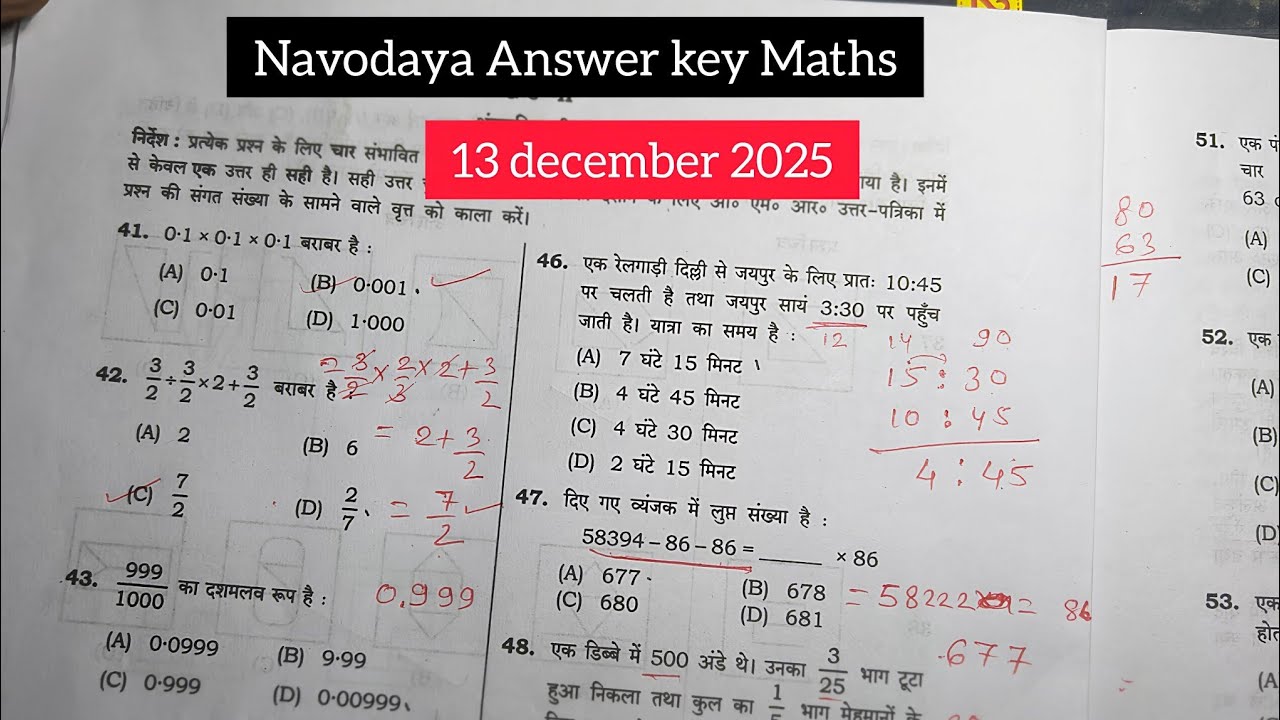 Navodaya Answer key Maths
13 december 2025
निर्देश : प्रत्येक प्रश्न के लिए चार संभावित
से केवल एक उत्तर ही सही है। सही उत्तर
गया है। इनमें
के लिए ओ० एम० आर० उत्तर-पत्रिका में
प्रश्न की संगत संख्या के सामने वाले वृत्त को काला करें।
41. 0·1 × 0·1 × 0·1 बराबर है :
(A) 0·1
(B) 0·001
(C) 0·01
(D) 1·000
42. 3/2 ÷ 3/2 × 2 + 3/2 बराबर है :
3/2 × 2/3 × 2 + 3/2
(A) 2
(B) 6
= 2 + 3/2
(C) 7/2
(D) 2/7
= 7/2
43. 999/1000 का दशमलव रूप है :
0.999
(A) 0·0999
(B) 9·99
(C) 0·999
(D) 0·00999
46. एक रेलगाड़ी दिल्ली से जयपुर के लिए प्रातः 10:45
पर चलती है तथा जयपुर सायं 3:30 पर पहुँच
जाती है। यात्रा का समय है :
12
14 90
(A) 7 घंटे 15 मिनट
15 : 30
(B) 4 घंटे 45 मिनट
10 : 45
(C) 4 घंटे 30 मिनट
4 : 45
(D) 2 घंटे 15 मिनट
47. दिए गए व्यंजक में लुप्त संख्या है :
58394 – 86 – 86 = ______ × 86
(A) 677
(B) 678
= 58222
= 86
(C) 680
(D) 681
677
48. एक डिब्बे में 500 अंडे थे। उनका 3/25 भाग टूटा
हुआ निकला तथा कुल का 1/5 भाग मेहमानों के
51. एक
चार
63
80
63
17
(A)
(C)
52. एक
(A)
(B)
(C)
(D)
53. एक
(A)